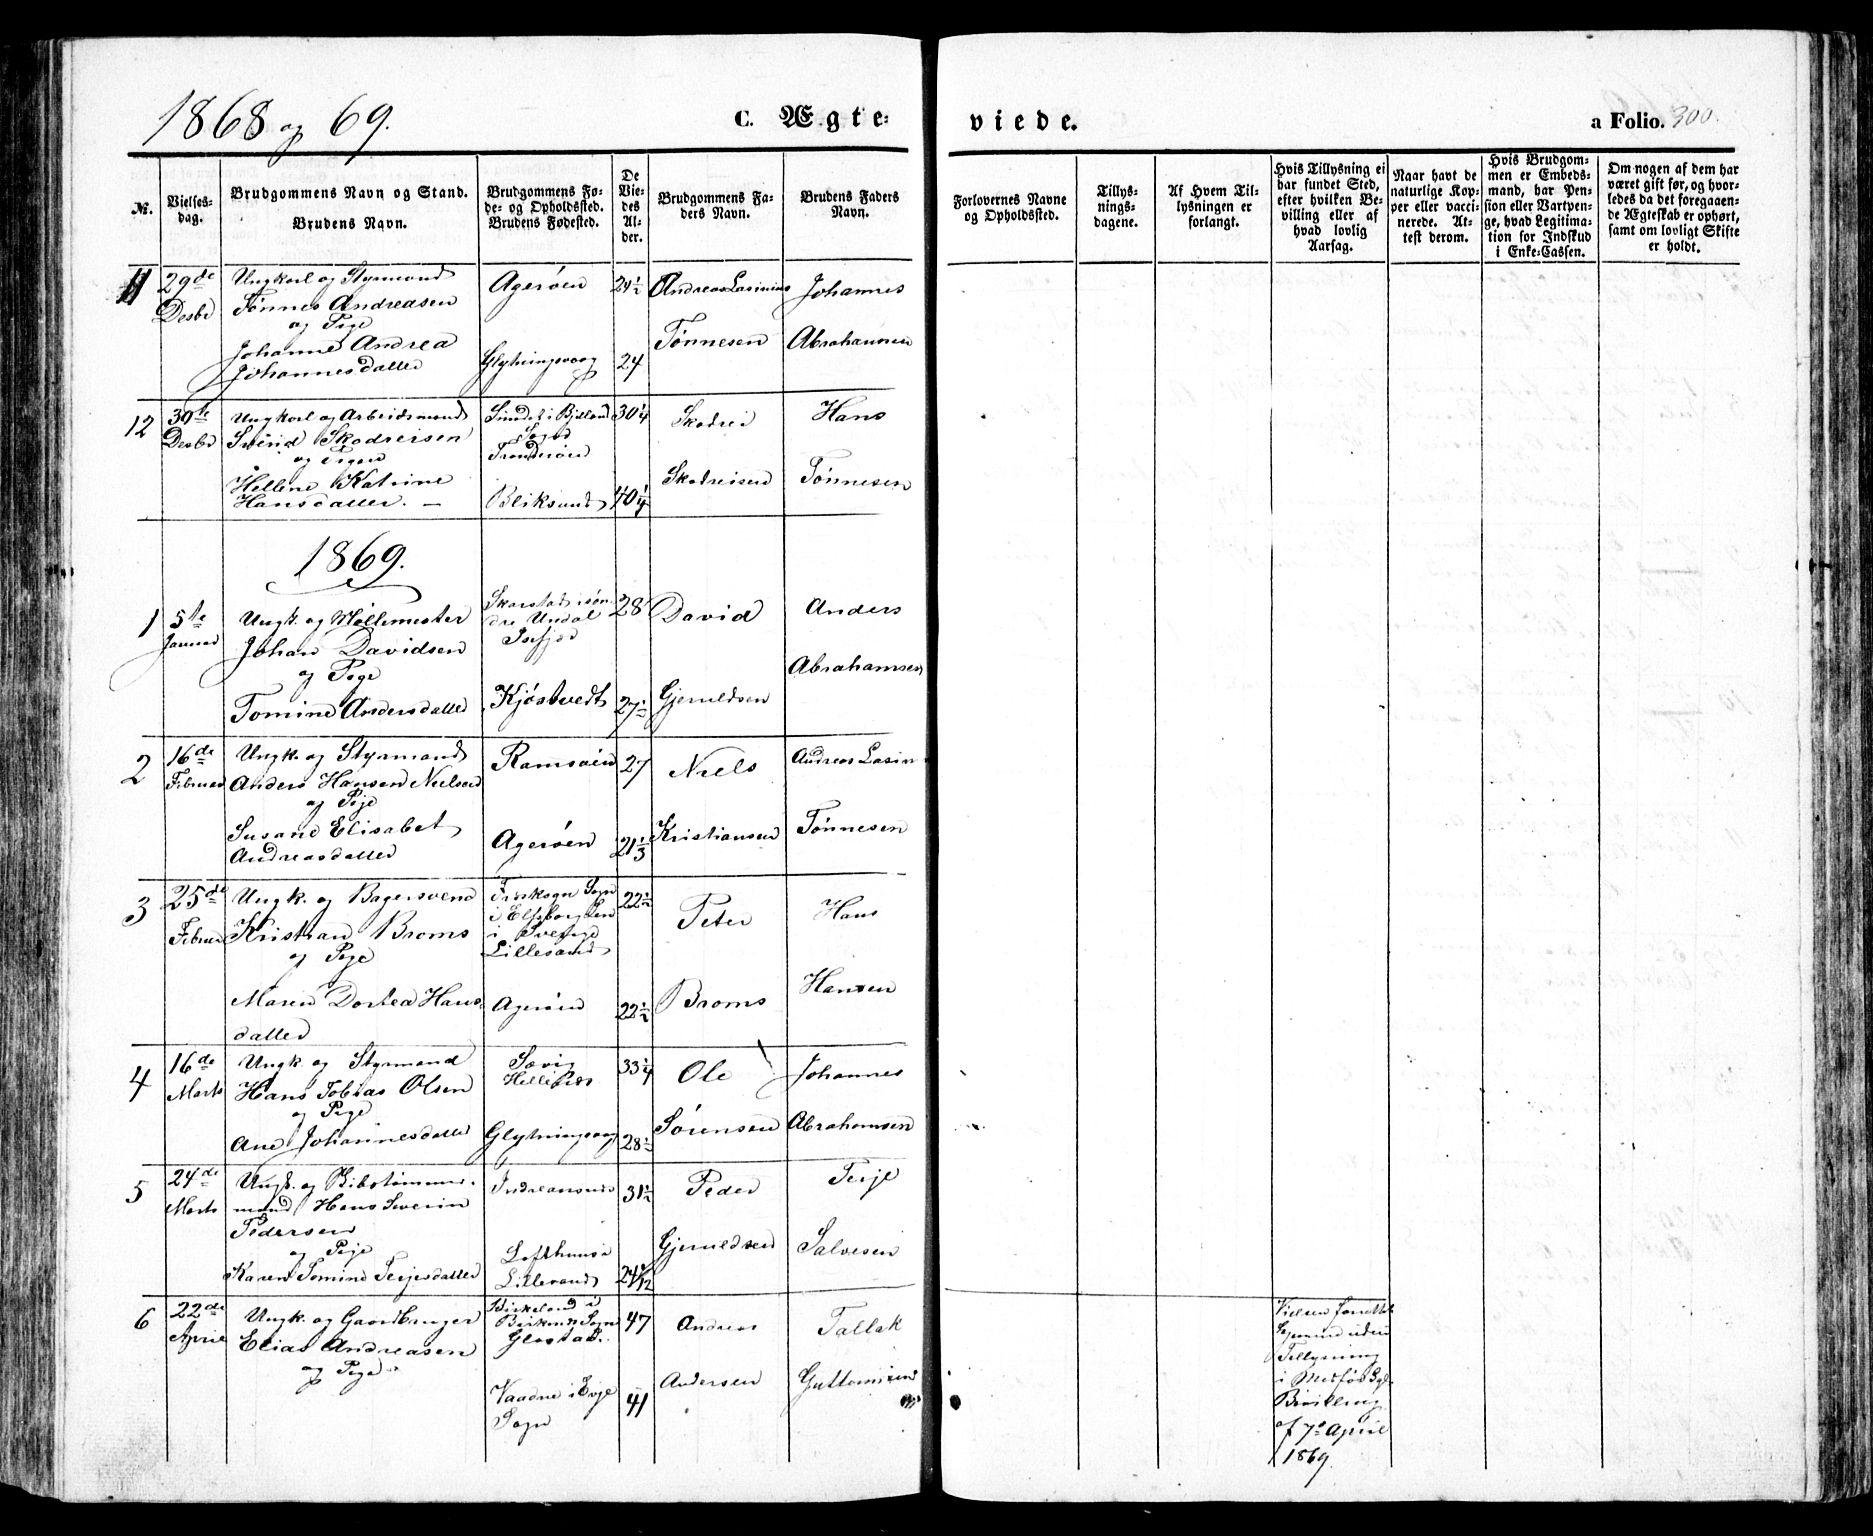 1868 og 69.
C. Ægte-
viede.
a Folio. 300.
№.
Vielses-
dag.
Brudgommens Navn og Stand.
Brudens Navn.
Brudgommens Fø-
de- og Opholdsted.
Brudens Fødested.
De
Vie-
des
Al-
der.
Brudgommens Fa-
ders Navn.
Brudens Faders
Navn.
Forlovernes Navne
og Opholdsted.
Tillys-
nings-
dagene.
Af Hvem Til-
lysningen er
forlangt.
Hvis Tillysning ei
har fundet Sted,
efter hvilken Be-
villing eller af
hvad lovlig
Aarsag.
Naar havt de
naturlige Kop-
per eller vacci-
nerede. At-
test derom.
Hvis Brudgom-
men er Embeds-
mand, har Pen-
sion eller Vartpen-
ge, hvad Legitima-
tion for Indskud
i Enke-Cassen.
Om nogen af dem har
været gift før, og hvor-
ledes da det foregaaen-
de Ægteskab er ophørt,
samt om lovligt Skifte
er holdt.
11 29de Desbr
Ungkarl og Styrmand
Tönnes Andreasen
og Pige
Johanne Andrea
Johannesdatter
Agerøen 24½
Glytningsvaag 24
Andreas Lasinius
Tönnesen
Johannes
Abrahamsen
12 30te Desbr
Ungkarl og Arbeidsmand
Svend Skodreisen
og Pigen
Hellene Katrine
Hansdatter. —
Bjelland
Sogn
30¼
Bliksund 40¼
Skodrei
Skodreisen
Hans
Tönnesen
1869.
1 5te Januar
Ungk. og Møllemester
Johan Davidsen
og Pige
Tomine Andersdatter
Skarstad i Søn-
dre Undal
Isefjær
28
Kjöstvedt 27½
David
Gjeruldsen
Anders
Abrahamsen
2 16de Februar
Ungk. og Styrmand
Anders Hansen Nielsen
og Pige
Susane Elisabet
Andreasdatter
Ramsøen 27
Agerøen 21⅓
Niels
Kristiansen
Andreas Lasin
Tönnesen
3 25de Februar
Ungk. og Bagersvend
Kristian Broms
og Pige
Maren Dortea Hans-
datter
Sogn
i Elfsborg Len
i Sverige
Lillesand
22½
Agerøen 22½
Peter
Broms
Hans
Hansen
4 16de Marts
Ungk. og Styrmand
Hans Tobias Olsen
og Pige
Ane Johannesdatter
Sævig
33¼
Glytningsvaag 28½
Ole
Sörensen
Johannes
Abrahamsen
5 24de Marts
Ungk. og Skibstømmer-
mand Hans Severin
Pedersen
og Pige
Karen Tomine Terjesdatter
Indreaasund 31½
Lofthuus
Lillesand
Peder
Gjeruldsen
Terje
Salvesen
6 22de April
Ungk. og Gaardbruger
Elias Andreasen
og Pige
Birkeland i
Birkenæs Sogn
Glastad.
47
Vaadne i Evje
Sogn
41
Andreas
Andersen
Tallak
Guttormsen
Vielsen forrettet
uden
Tillysning
i Medfør
Bevilling
af 7de April
1869.